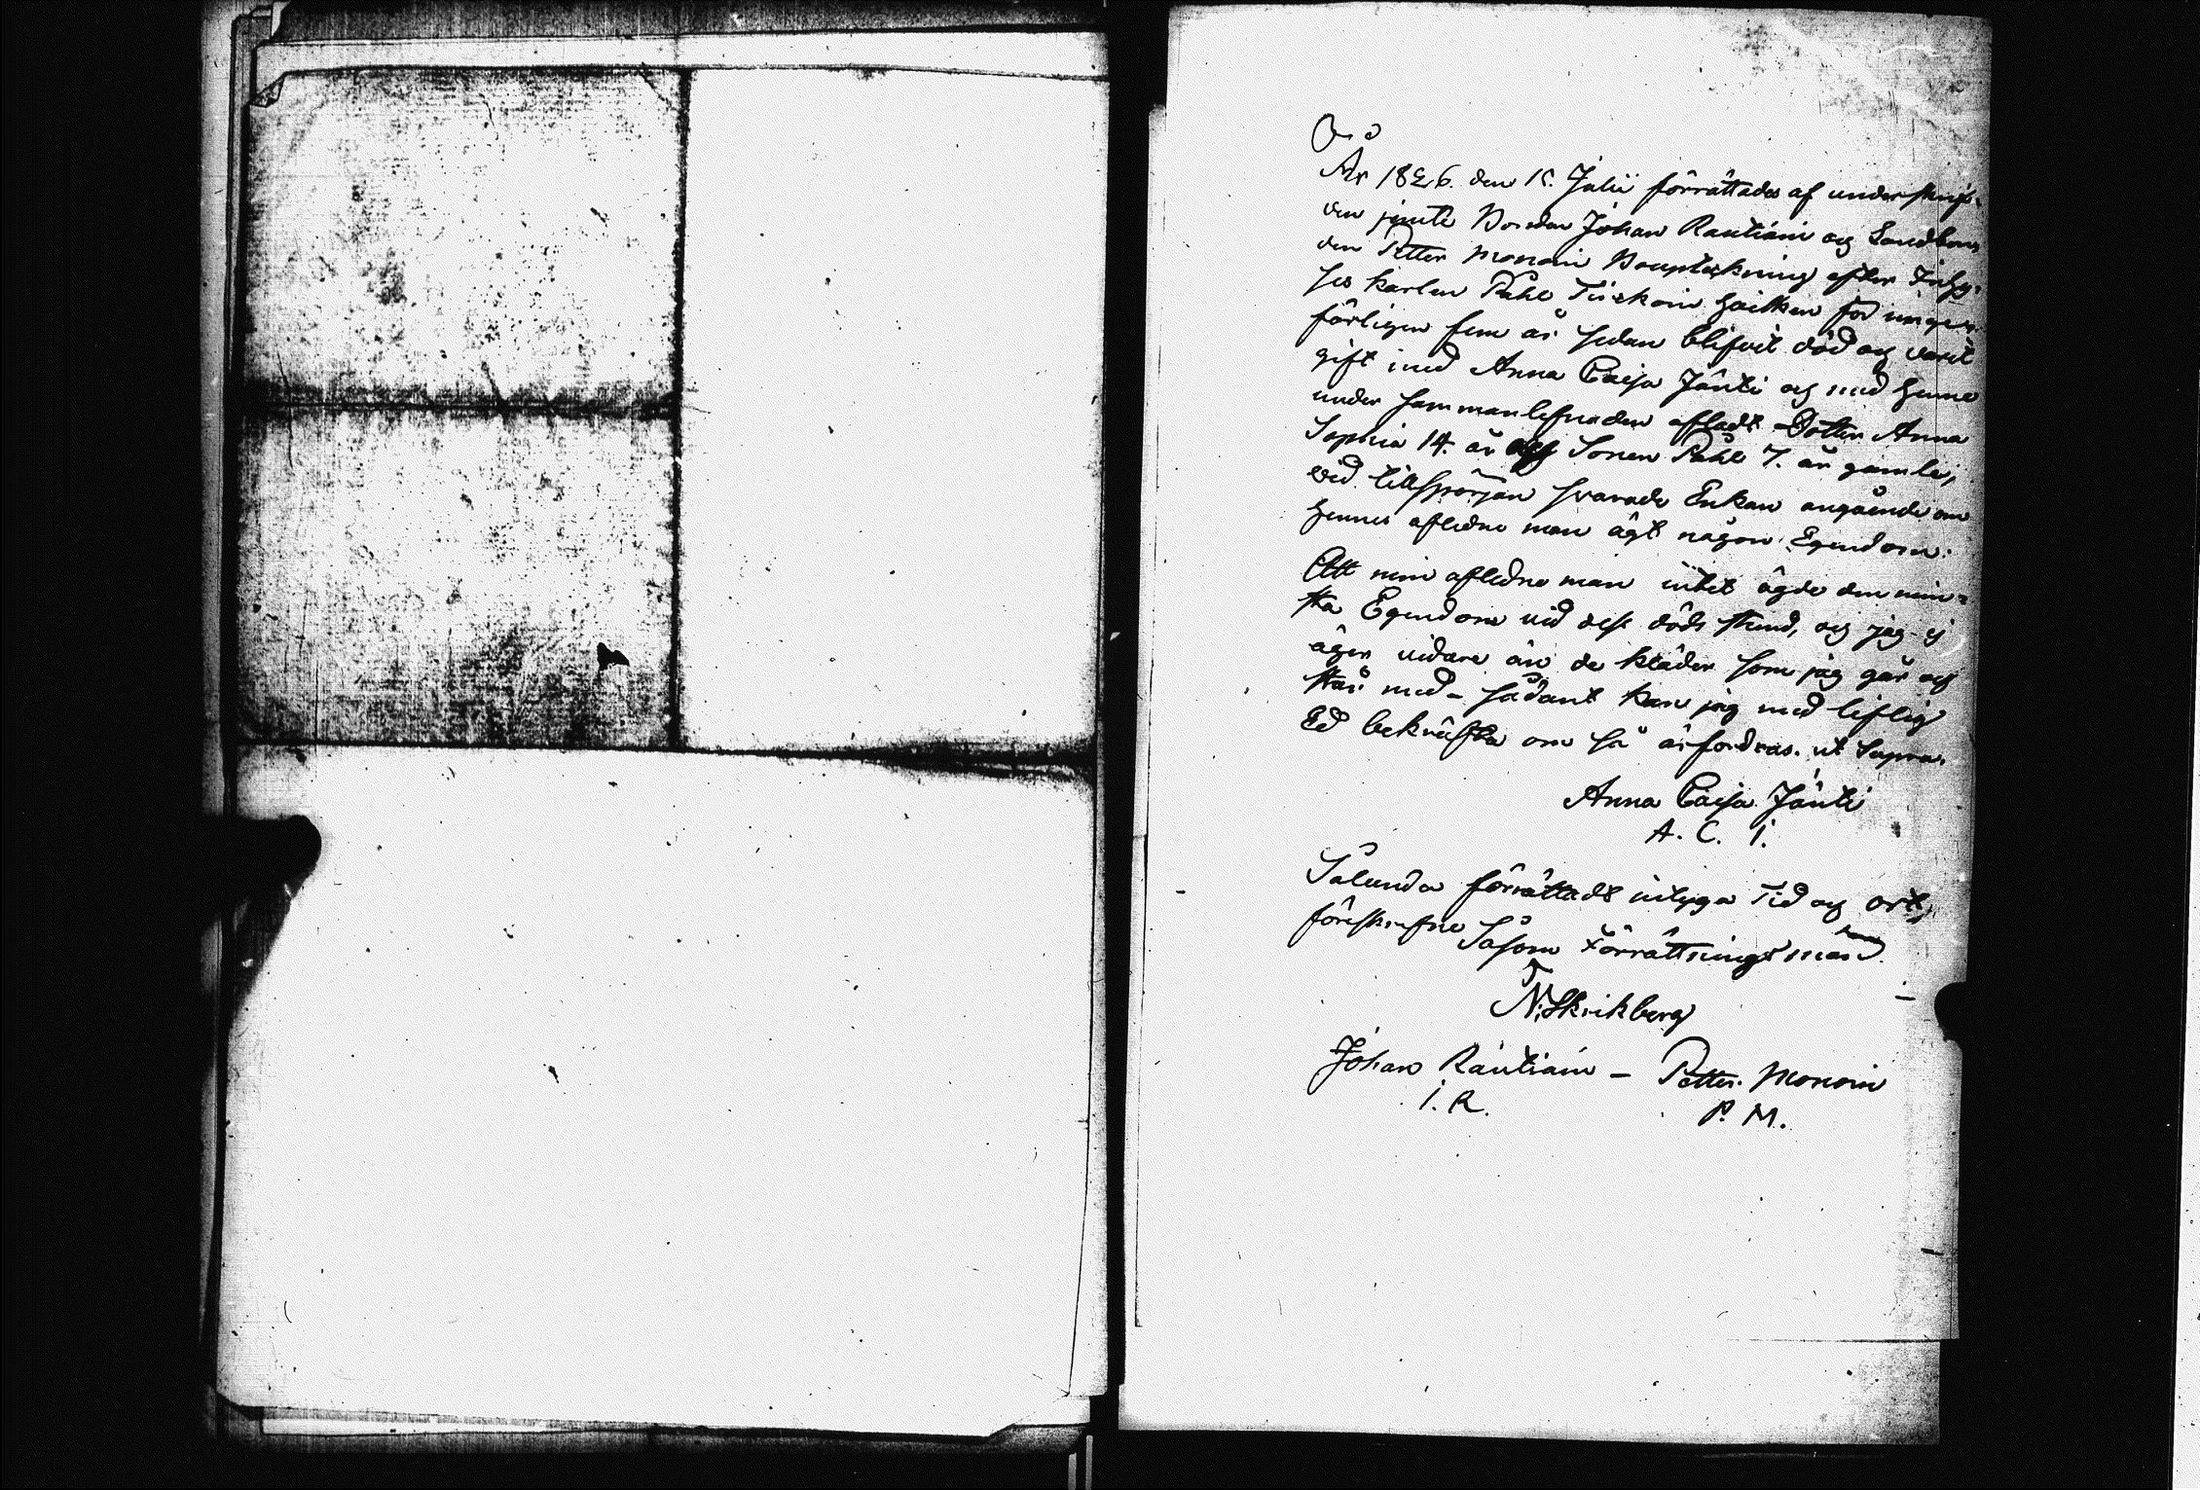 År 1826. den 15. Julii förrättades af underskrif-
ven jämte Bonden Johan Rautiain og Landbon-
den Petter Monoin Boupteckning efter Inhy-
ses karlen Påhl Tiiskoin hvilken för unge-
färligen fem år sedan blifvit död og varit
gift med Anna Caisa Jänti og med henne
under sammanlefnaden afladt Dotter Anna
Sophia 14. år og Sonen Påhl 7. år gamle,
vid tillspörjan svarade Enkan angående om
hennes afledne man ägt någon Egendom:
Att min afledne man intet ägde den min-
sta Egendom vid dess döds stund, og jag ej
äger vidare än de kläder som jag går og
står med – sådant kan jag med liflig
Ed bekräfta om så ärfordras. ut Supra.
Anna Caisa Jänti
A. C. I.
Sålunda förrättadt intyga Tid og ort,
föreskrefne
Såsom Förrättningsmän
N. Skrikberg
Johan Rautiain – Petter Monoin
I. R. P. M.